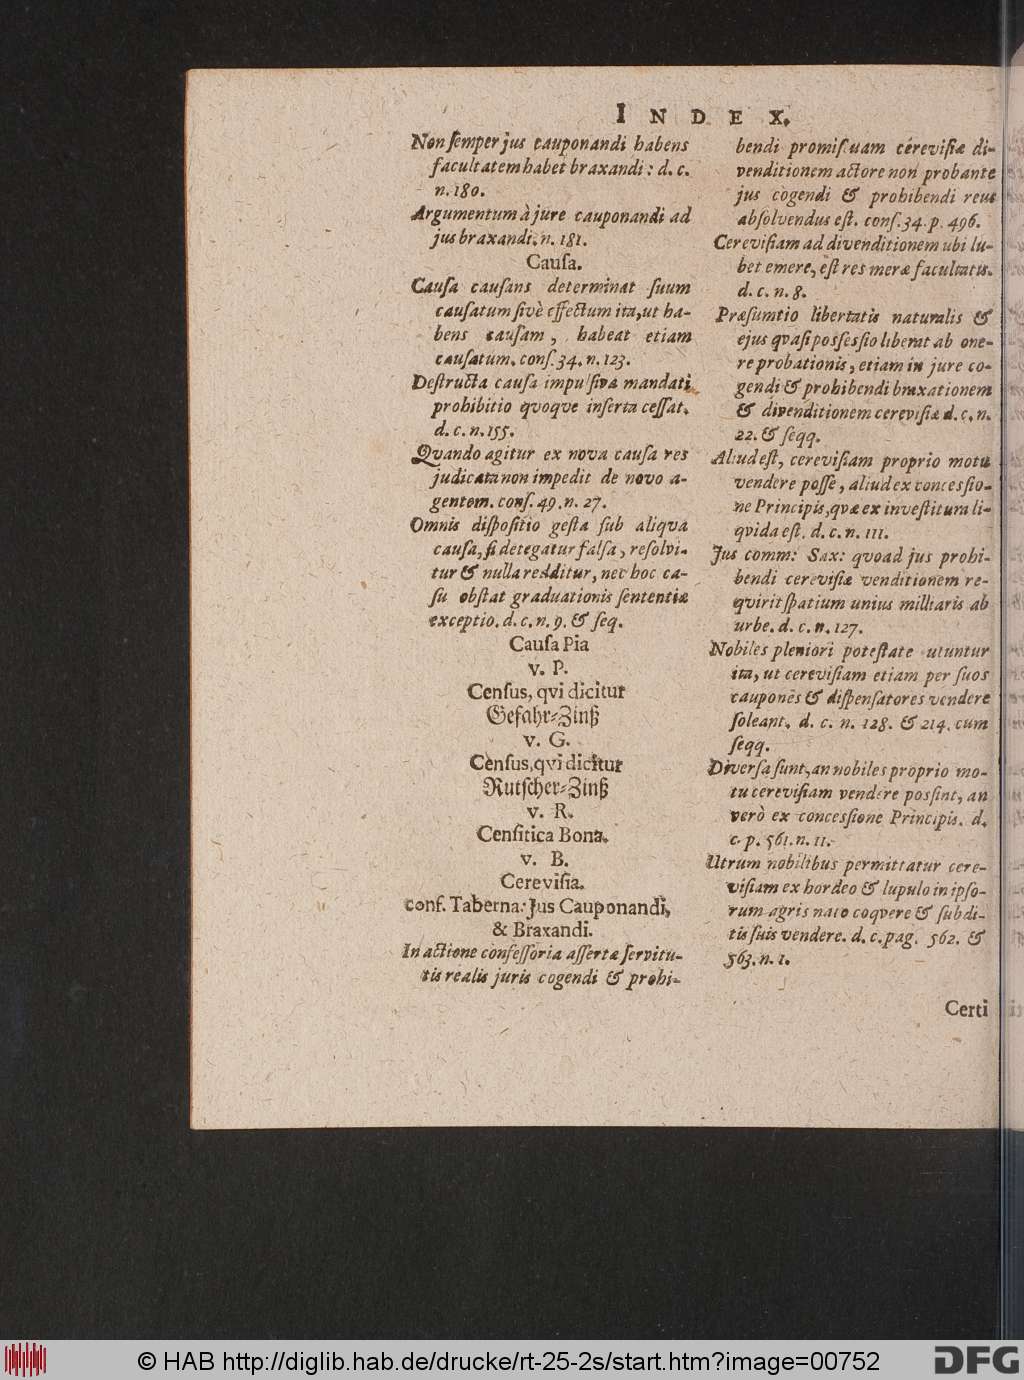 INDEX.
Non semper jus cauponandi habens
facultatem habet braxandi: d. c.
n. 180.
Argumentum à jure cauponandi ad
jus braxandi. n. 181.
Causa.
Causa causans determinat suum
causatum sivè effectum ita, ut ha-
bens causam, habeat etiam
causatum. cons. 34. n. 123.
Destructa causa impulsiva mandati
prohibitio quoque inserta cessat.
d. c. n. 155.
Quando agitur ex nova causa res
judicata non impedit de novo a-
gentem. cons. 49. n. 27.
Omnis dispositio gesta sub aliqvâ
causa, si detegatur falsa, resolvi-
tur & nulla redditur, nec hoc ca-
su obstat graduationis sententiæ
exceptio. d. c. n. 9. & seq.
Causa Pia
v. P.
Census, qvi dicitur
Gefahr-Zinß
v. G.
Census, qvi dicitur
Rutscher-Zinß
v. R.
Censitica Bona.
v. B.
Cerevisia.
conf. Taberna: Jus Cauponandi,
& Braxandi.
In actione confessoria assertæ servitu-
tis realis juris cogendi & prohi-
bendi promiscuam cerevisiæ di-
venditionem actore non probante
jus cogendi & prohibendi reus
absolvendus est. cons. 34. p. 496.
Cerevisiam ad divenditionem ubi lu-
bet emere, est res meræ facultatis.
d. c. n. 8.
Præsumtio libertatis naturalis &
ejus qvasi possessio liberat ab one-
re probationis, etiam in jure co-
gendi & prohibendi braxationem
& divenditionem cerevisiæ d. c. n.
22. & seqq.
Aliud est, cerevisiam proprio motu
vendere posse, aliud ex concessio-
ne Principis, qvæ ex investitura li-
qvida est. d. c. n. 111.
Jus comm: Sax: qvoad jus prohi-
bendi cerevisiæ venditionem re-
qvirit spatium unius milliaris ab
urbe. d. c. n. 127.
Nobiles pleniori potestate utuntur
ita, ut cerevisiam etiam per suos
caupones & dispensatores vendere
soleant. d. c. n. 128. & 214. cum
seqq.
Diversa sunt, an nobiles proprio mo-
tu cerevisiam vendere possint, an
verò ex concessione Principis. d.
c. p. 561. n. 11.
Utrum nobilibus permittatur cere-
visiam ex hordeo & lupulo in ipso-
rum agris nato coqvere & subdi-
tis suis vendere. d. c. pag. 562. &
563. n. 1.
Certi
© HAB http://diglib.hab.de/drucke/rt-25-2s/start.htm?image=00752
DFG